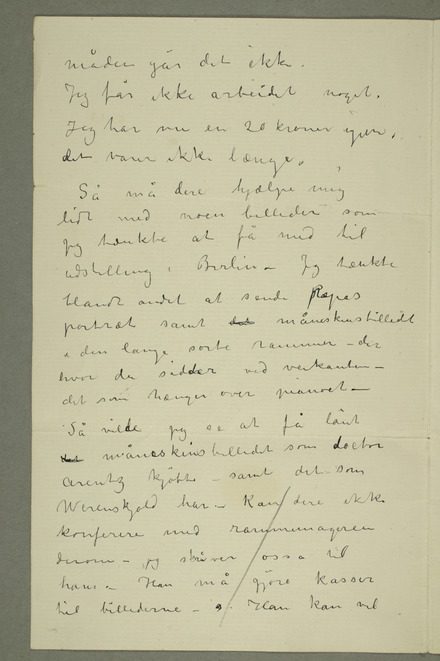 måden går det ikke.
Jeg får ikke arbeidet noget.
Jeg har nu en 20 kroner igjen,
det varer ikke længe.
Så må dere hjælpe mig
lidt med noen billeder som
jeg tænkte at få med til
udstilling i Berlin – Jeg tænkte
blandt andet at sende Papas
portræt samt det måneskinsbilledet
i den lange sorte rammen – der
hvor du sidder ved verkanten –
det som hænger over pianoet –
Så vilde jeg se at få lånt
det måneskinsbilledet som doctor
Arentz kjøbte – samt det som
Werenskjold har – Kan dere ikke
konferere med rammemageren
derom – jeg skriver osså til
ham – Han må gjøre kasser
til billederne – Han kan vel